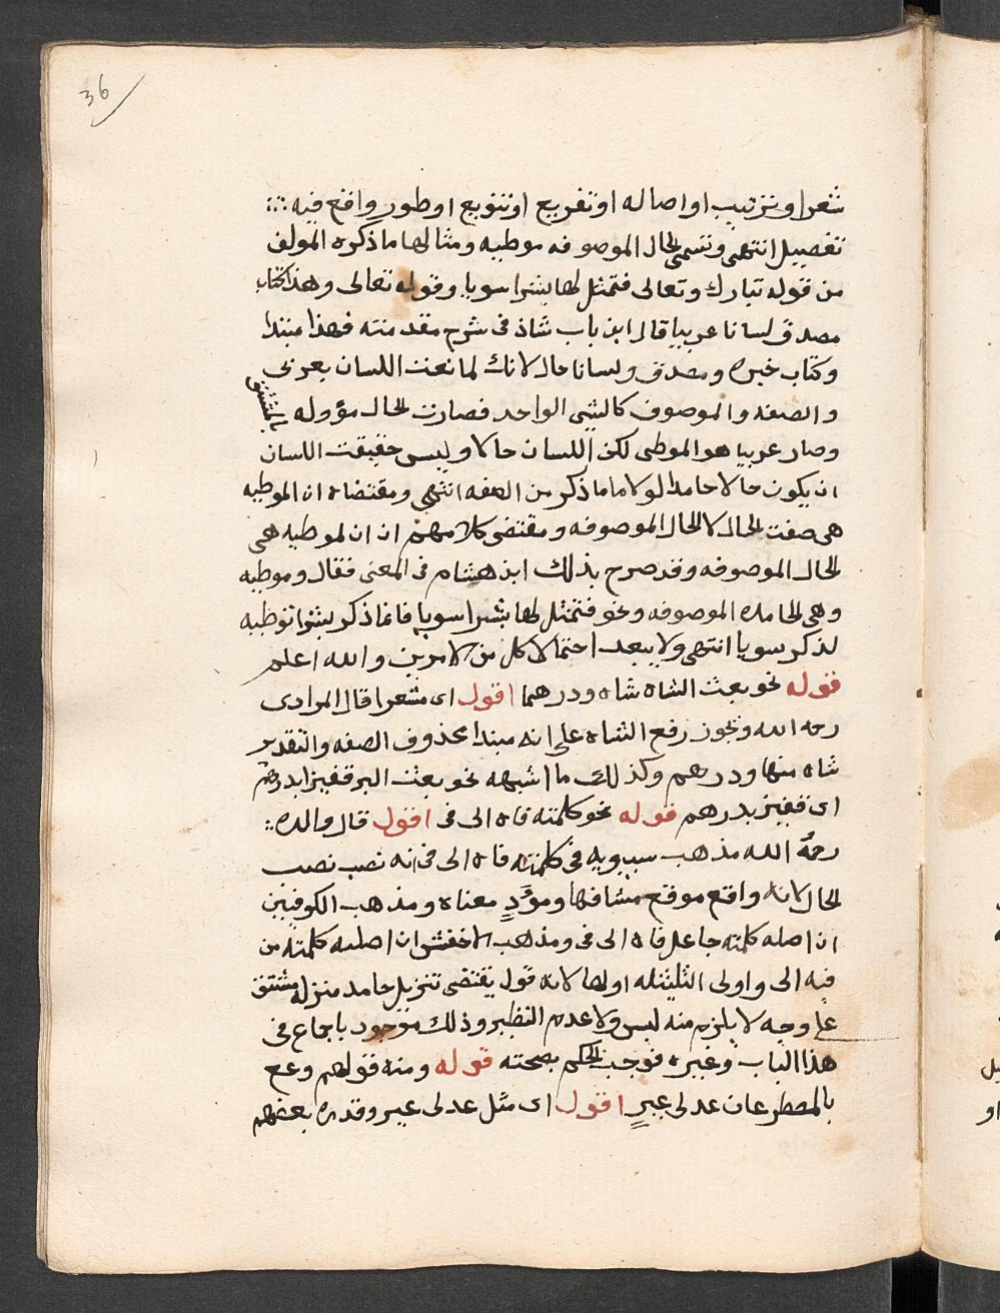 36
شعرا وترتيب او اصاله او تفريع او تنويع او طور واقع فيه
تفصيل انتهى وتسمى الحال الموصوفه موطيه ومثالها ما ذكره المولف
من قوله تبارك وتعالى فتمثل لها بشرا سويا وقوله تعالى وهذا كتاب
مصدق لسانا عربيا قال ابن باب شاذ فى شرح مقدمته فهذا مبتدا
وكتاب خبره ومصدق ولسانا حال لانك لما نعت اللسان بعربى
والصفه والموصوف كالشى الواحد فصارت الحال مؤوله بالمشتق
وصار عربيا هو الموطى لكن اللسان حالا وليس حقيقت اللسان
ان يكون حالا جامدا لولا ما ذكر من الصفه انتهى ومقتضاه ان الموطيه
هى صفت الحال لا الحال الموصوفه ومقتضى كلامهم ان ان لموطيه هى
الحال الموصوفه وقد صرح بذلك ابن هشام فى المغنى فقال وموطيه
وهى الجامده الموصوفه ونحو فتمثل لها بشرا سويا فانما ذكر بشرا توطيه
لذكر سويا انتهى ولا يبعد احتمال كل من الامرين والله اعلم
قوله نحو بعث الشاه شاه ودرهما اقول اى مشعرا قال المرادى
رحمه الله ونجوز رفع الشاه على انه مبتدا محذوف الصفه والتقدير
شاه منها ودرهم وكذلك ما اشبهه نحو بعت البر قفيزا بدرهم
اى قفيز بدرهم قوله نحو كلمته فاه الى فى اقول قال والده
رحمه الله مذهب سيبويه فى كلمته فاه الى فى انه نصب نصب
الحال لانه واقع موقع مشافها ومؤد معناه ومذهب الكوفين
ان اصله كلمته جاعل فاه الى فى ومذهب الاخفش ان اصله كلمته من
فيه الى واولى الثلثله اولها لانه قول يقتضى تنزيل جامد منزله مشتق
على وجه لا يلزم منه لبس ولا عدم النظير وذلك موجود باجماع فى
هذا الباب وغيره فوجب الحكم بصحته قوله ومنه قولهم وعع
بالمصطرعان عدلى عير اقول اى مثل عدلى عير وقدره بعضهم